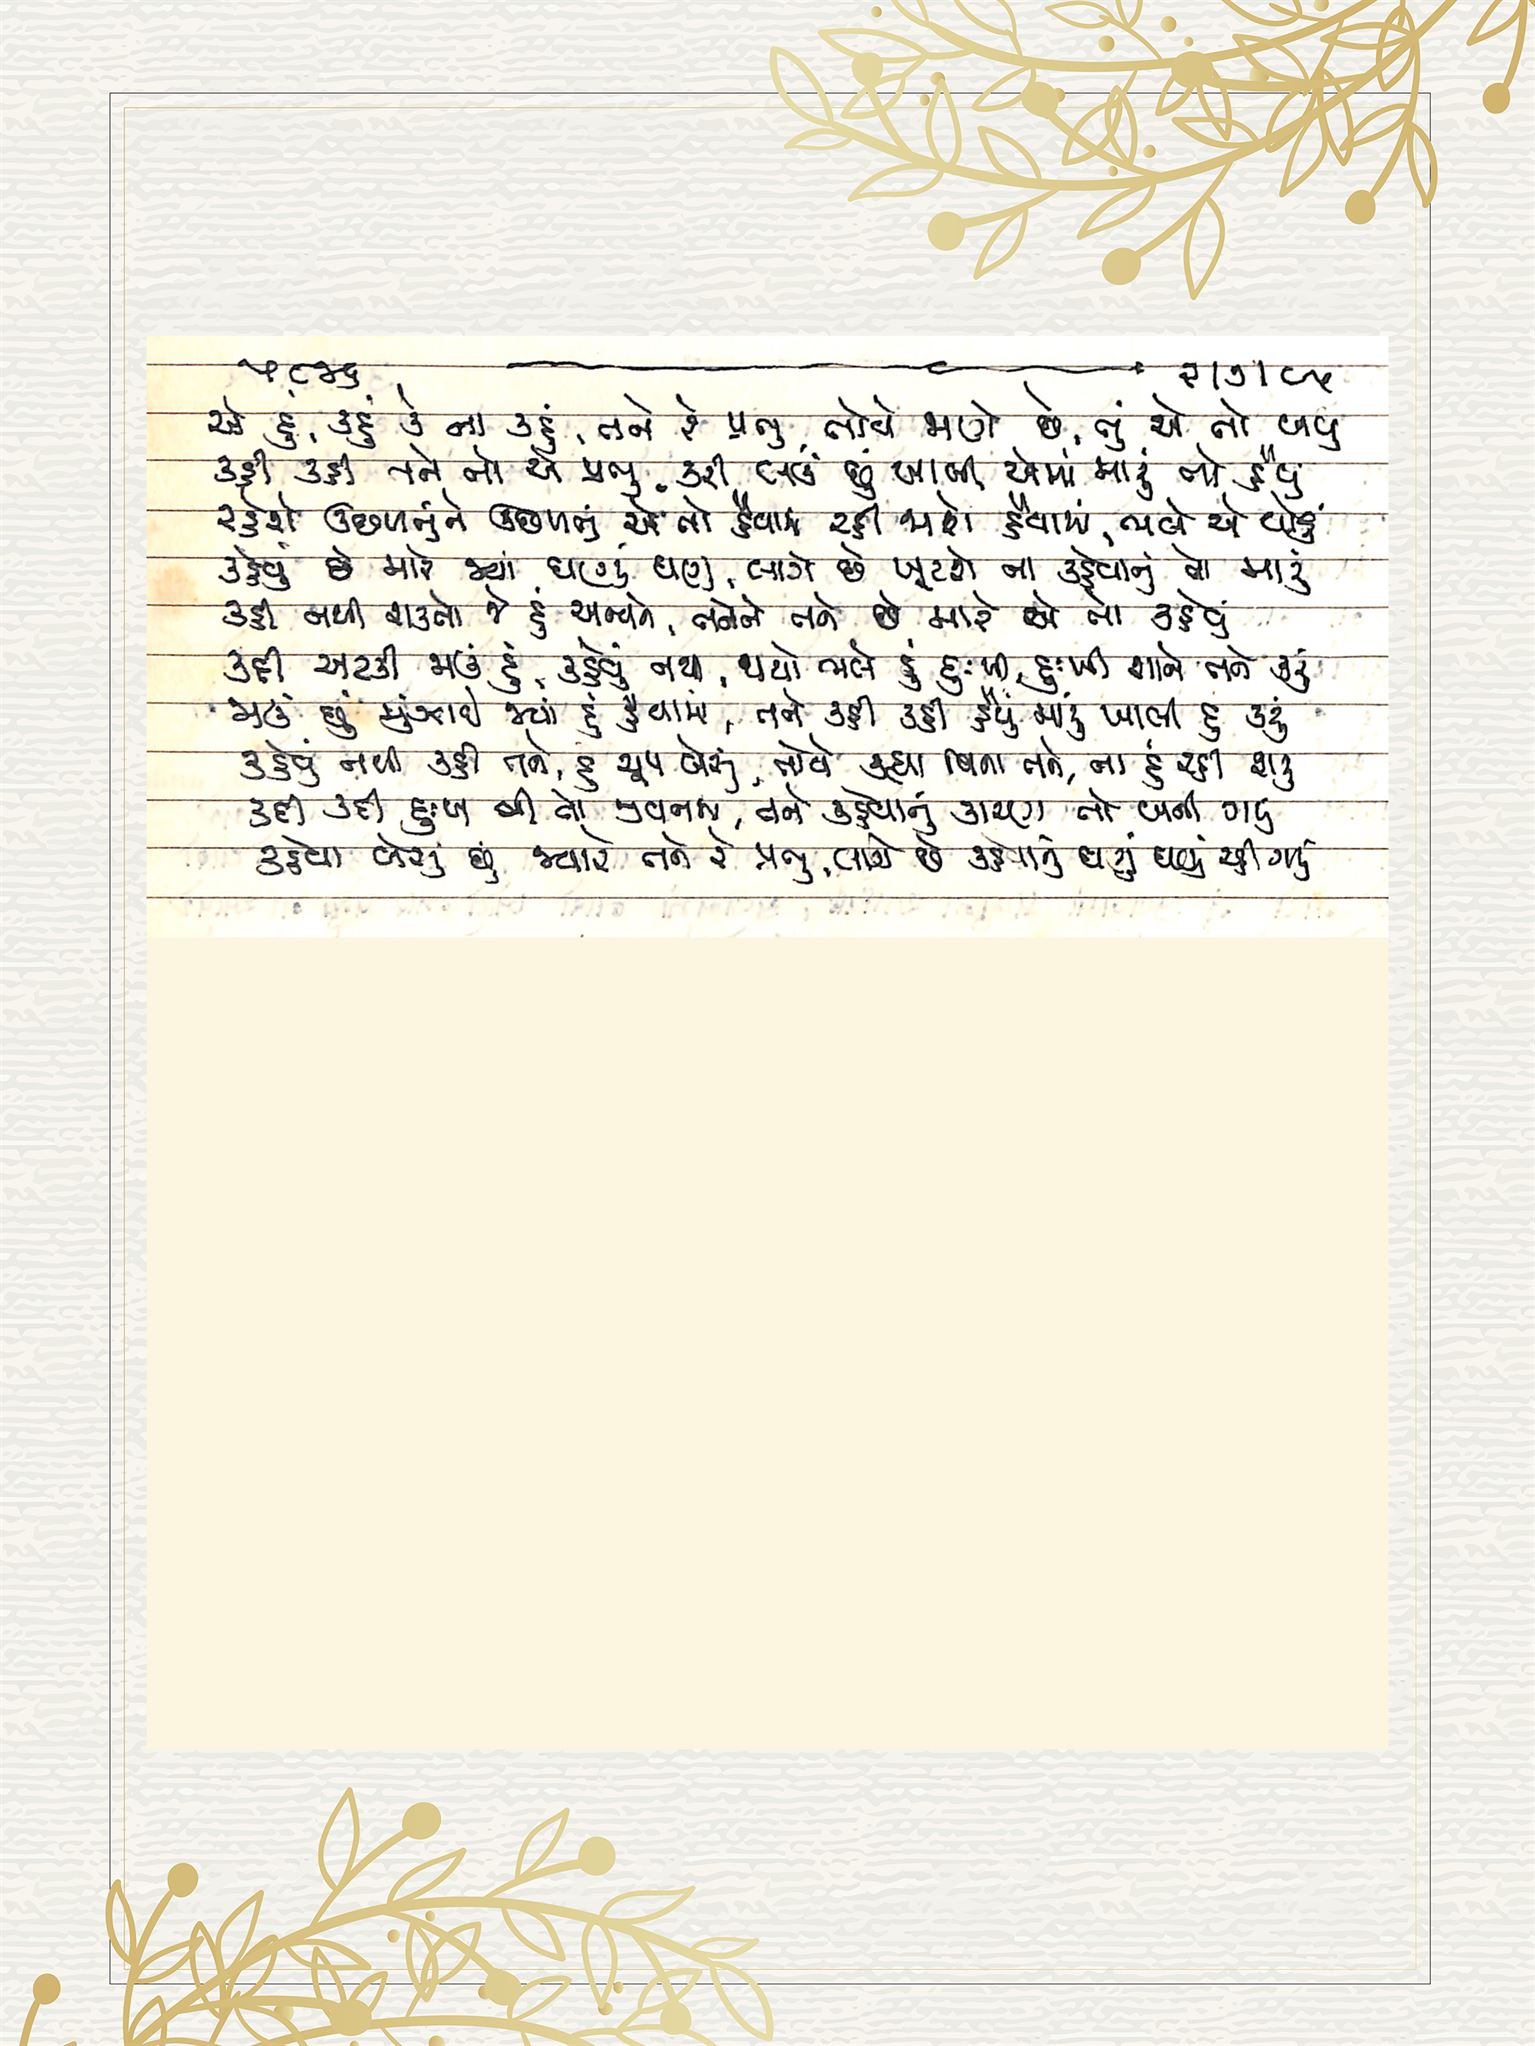 ૫૮૪૬ ૨।૭।૯૫
એ હું, કહું કે ના કહું, તને રે પ્રભુ, તોયે જાણે છે, તું એ તો બધું
કહી કહી તને તો એ પ્રભુ, કરી લઉં છું ખાલી એમાં મારું તો હૈયું
રહેશે ઉછળતુંને ઉછળતું એ તો હૈયામાં રહી જાશે હૈયામાં, ભલે એ થોડું
કહેવું છે મારે જ્યાં ઘણું ઘણું, લાગે છે ખૂટશે ના કહેવાનું તો મારું
કહી નથી શક્તો જે હું અન્યને, તનેને તને છે મારે એ તો કહેવું
કહી અટકી જાઉં હું, કહેવું નથી, થયો ભલે હું દુઃખી, દુઃખી શાને તને કરું
જાઉં છું મુંઝાયે જ્યાં હું હૈયામાં, તને કહી કહી હૈયું મારું ખાલી હુ કરું
કહેવું નથી કહી તને, હુ ચૂપ બેસું, તોયે કહ્યા વિના તને, ના હું રહી શકું
કહી કહી દુઃખ બી તો જીવનમાં, તને કહેવાનું કારણ તો બની ગયું
કહેવા બેસું છું જ્યારે તને રે પ્રભુ, લાગે છે કહેવાનું ઘણું ઘણું રહી ગયું